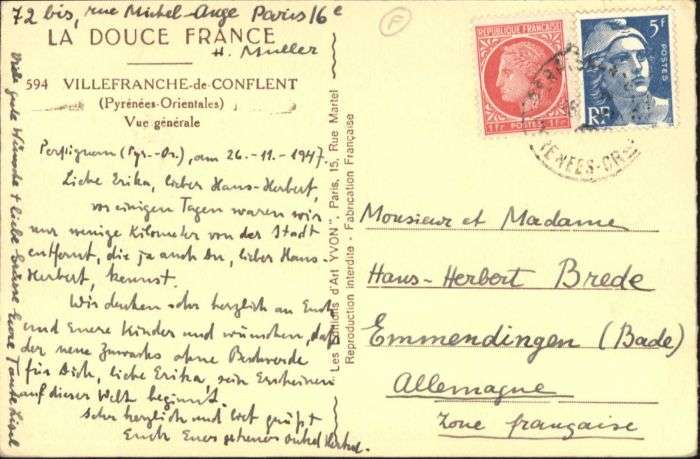 72 bis, rue Michel-Ange Paris 16e
H. Müller
LA DOUCE FRANCE
594 VILLEFRANCHE-de-CONFLENT
(Pyrénées-Orientales)
Vue générale
Perpignan (Pyr.-Or.), am 26.-11.-1947.
Liebe Erika, lieber Hans-Herbert,
vor einigen Tagen waren wir
nur wenige Kilometer von der Stadt
entfernt, die ja auch Du, lieber Hans-
Herbert, kennst.
Wir denken sehr herzlich an Euch
und Euere Kinder und wünschen, daß
der neue Zuwachs ohne Beschwerde
für Dich, liebe Erika, sein Erscheinen
auf dieser Welt beginnt.
Sehr herzlich und lieb grüßt
Euch Euer getreuer Onkel
Viele gute Wünsche + liebe Grüsse Eure Tante Liesel
Les Editions d'Art YVON". Paris, 15, Rue Martel
Reproduction interdite - Fabrication Française
F
REPUBLIQUE FRANÇAISE
1F POSTES 1F
5F
POSTES
RF
Monsieur et Madame
Hans-Herbert Brede
Emmendingen (Bade)
Allemagne
Zone française